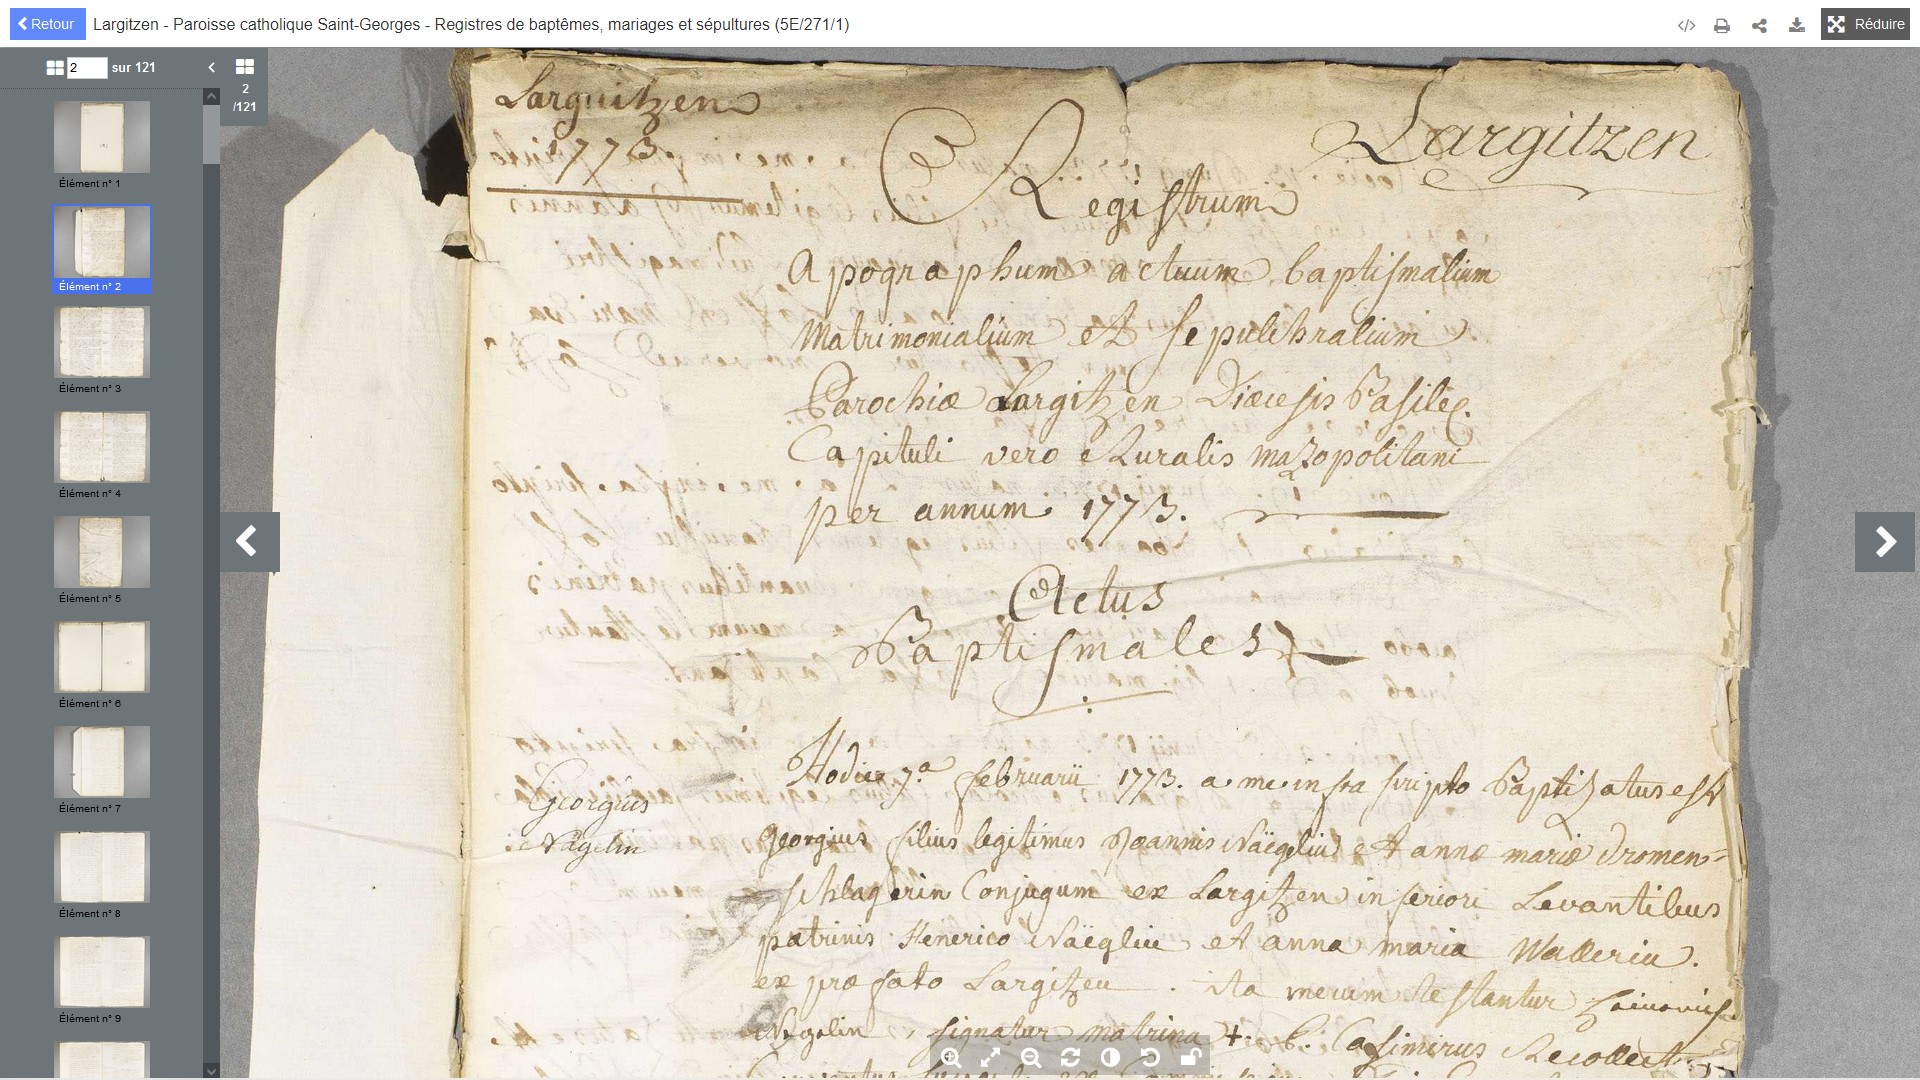 Retour
Largitzen - Paroisse catholique Saint-Georges - Registres de baptêmes, mariages et sépultures (5E/271/1)
Réduire
2 sur 121
2
/121
Élément n° 1
Élément n° 2
Élément n° 3
Élément n° 4
Élément n° 5
Élément n° 6
Élément n° 7
Élément n° 8
Élément n° 9
Larguitzen
1773
Largitzen
Registrum
Apographum actuum baptismalium
Matrimonialium et sepulchralium
Parochiæ Largitzen Diæcesis Basile.
Capituli vero Ruralis mazopolitani
per annum 1773.
Actus
Baptismales
Georgius
Nägelin
Hodie 7.a februarii 1773. a me infra scripto Baptizatus est
Georgius filius legitimus Joannis Näegelin et annæ mariæ dromen=
schlagerin Conjugum ex Largitzen inferiori Levantibus
patrinis Henerico Näeglin et anna maria
ex præfato Largitzen. ita mecum testantur
Negelin, signatur matrina +. Casimirus Recollect